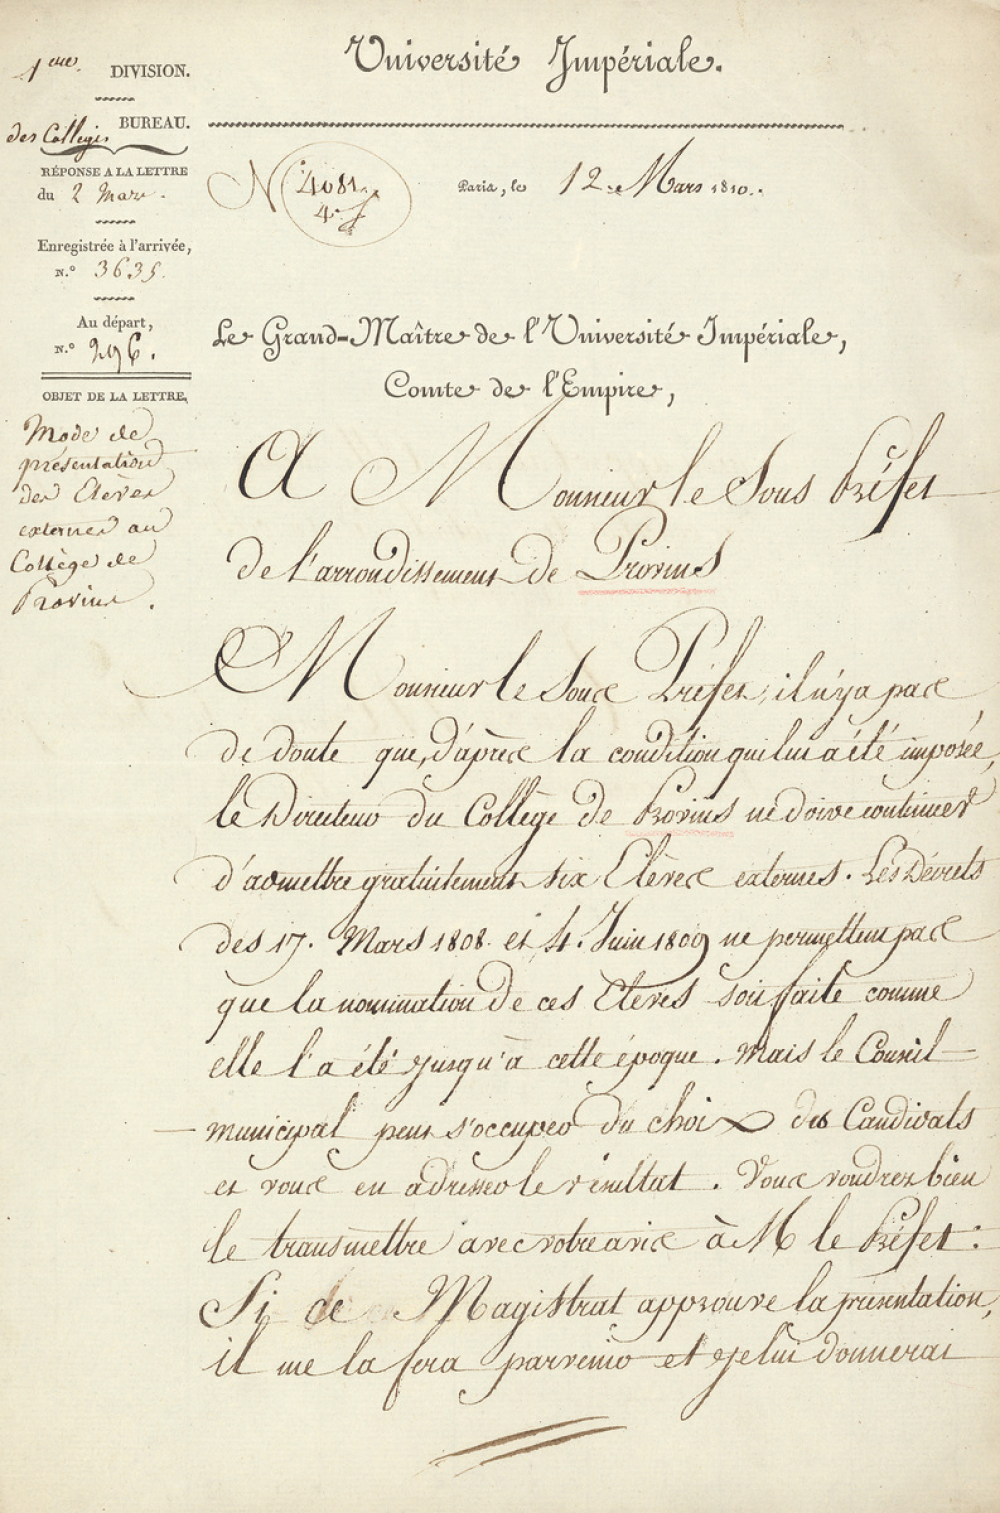 1ere. DIVISION.
des Colleges BUREAU.
RÉPONSE A LA LETTRE
du 2 Mars.
Enregistrée à l'arrivée,
N.° 3635.
Au départ,
N.° 296.
OBJET DE LA LETTRE,
Mode de
présentation
des Elèves
externes au
Collège de
Provins.
Université Impériale.
N 4081
Paris, le 12 Mars 1810.
Le Grand-Maître de l'Université Impériale,
Comte de l'Empire,
A Monsieur le Sous Préfet
de l'arrondissement de Provins
Monsieur le Sous Préfet, il n'y a pas
de doute que, d'après la condition qui lui a été imposée,
le Directeur du Collège de Provins ne doive continuer
d'admettre gratuitement six Elèves externes. Les Décrets
des 17. Mars 1808. et 4. Juin 1809 ne permettent pas
que la nomination de ces Elèves soit faite comme
elle l'a été jusqu'à cette époque. Mais le Conseil
municipal peut s'occuper du choix des Candidats
et vous en adresser le résultat. Vous voudrez bien
le transmettre avec votre avis à M le Préfet.
Si ce Magistrat approuve la présentation,
il me la fera parvenir et je lui donnerai